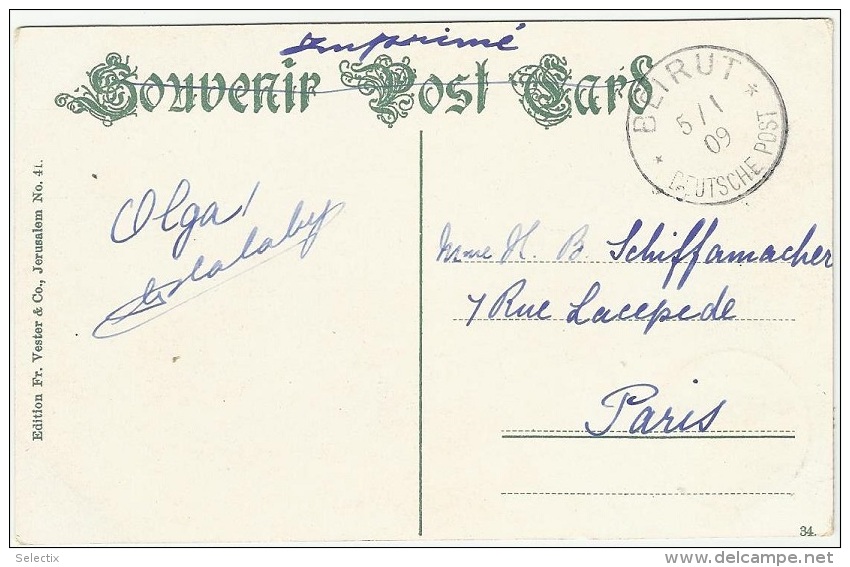 Imprimé
Souvenir Post Card
BEIRUT
5/1
09
* DEUTSCHE POST *
Edition Fr. Vester & Co., Jerusalem No. 41.
Olga
Mme H. B. Schiffamacher
7 Rue Lacepede
Paris
34.
Selectix
delcampe.net